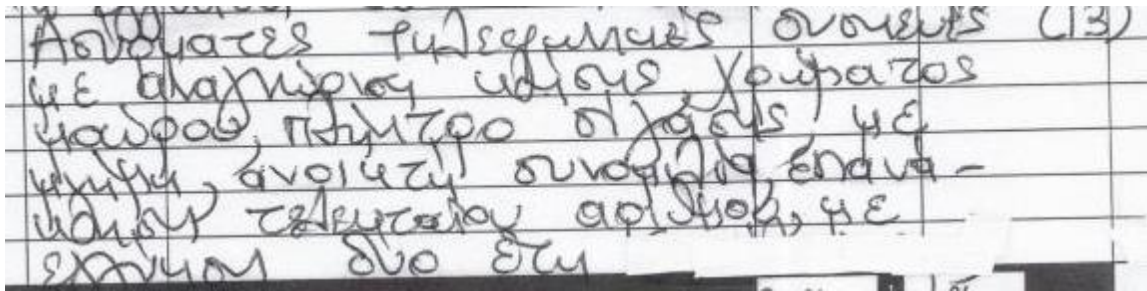 Ασύρματες τηλεφωνικές συσκευές (13)
με αναγνώριση κλήσης, χρώματος
μαύρου, πλήκτρο σίγασης, με
μνήμη, ανοικτή συνομιλία, επανά-
κληση τελευταίου αριθμού, με
εγγύηση δύο έτη